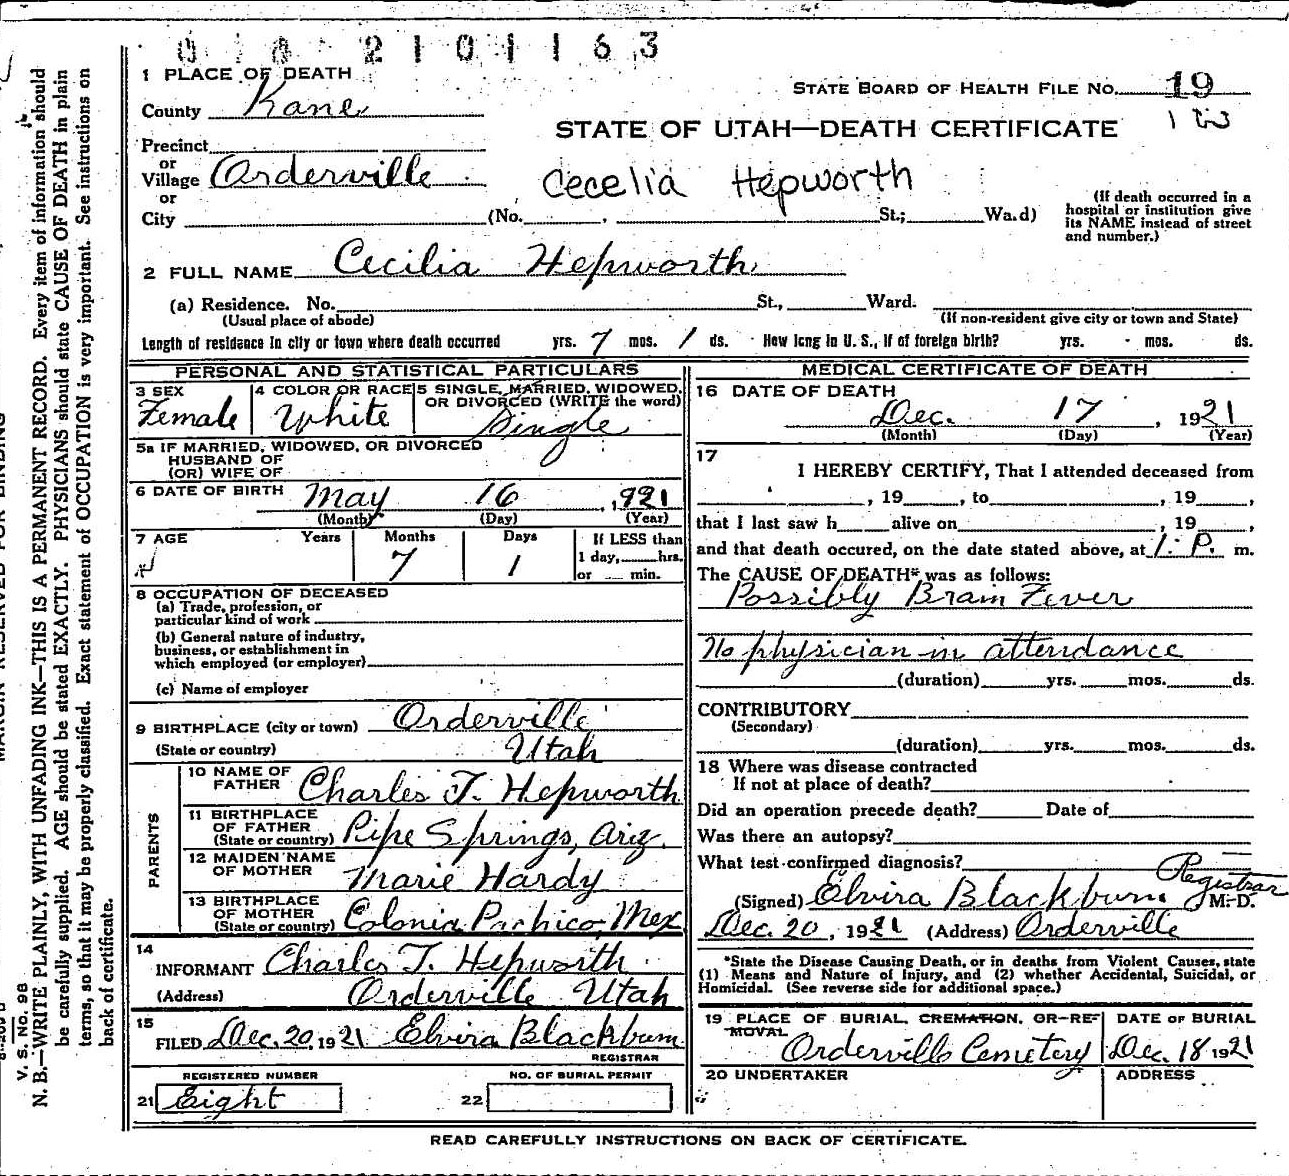 2101163
1 PLACE OF DEATH
County Kane
STATE BOARD OF HEALTH FILE No. 19
STATE OF UTAH—DEATH CERTIFICATE
Precinct
or
Village Orderville
or
City (No. , St.; Wa.d)
Cecelia Hepworth
(If death occurred in a
hospital or institution give
its NAME instead of street
and number.)
2 FULL NAME Cecilia Hepworth
(a) Residence. No. St., Ward.
(Usual place of abode) (If non-resident give city or town and State)
Length of residence in city or town where death occurred yrs. 7 mos. 1 ds. How long in U. S., if of foreign birth? yrs. mos. ds.
PERSONAL AND STATISTICAL PARTICULARS
3 SEX Female
4 COLOR OR RACE White
5 SINGLE, MARRIED, WIDOWED,
OR DIVORCED (WRITE the word)
Single
5a IF MARRIED, WIDOWED, OR DIVORCED
HUSBAND OF
(OR) WIFE OF
6 DATE OF BIRTH May 16, 1921
(Month) (Day) (Year)
7 AGE Years Months Days If LESS than
7 1 1 day, hrs.
or min.
8 OCCUPATION OF DECEASED
(a) Trade, profession, or
particular kind of work
(b) General nature of industry,
business, or establishment in
which employed (or employer)
(c) Name of employer
9 BIRTHPLACE (city or town) Orderville
(State or country) Utah
PARENTS
10 NAME OF
FATHER Charles T. Hepworth
11 BIRTHPLACE
OF FATHER
(State or country) Pipe Springs, Ariz.
12 MAIDEN NAME
OF MOTHER Marie Hardy
13 BIRTHPLACE
OF MOTHER
(State or country) Colonia Pachico, Mex
14
INFORMANT Charles T. Hepworth
(Address) Orderville Utah
15
FILED Dec. 20, 1921 Elvira Blackburn
REGISTRAR
REGISTERED NUMBER
21 Eight
NO. OF BURIAL PERMIT
22
MEDICAL CERTIFICATE OF DEATH
16 DATE OF DEATH
Dec. 17, 1921
(Month) (Day) (Year)
17
I HEREBY CERTIFY, That I attended deceased from
, 19 , to , 19 ,
that I last saw h alive on , 19 ,
and that death occured, on the date stated above, at 1. P. m.
The CAUSE OF DEATH* was as follows:
Possibly Brain Fever
No physician in attendance
(duration) yrs. mos. ds.
CONTRIBUTORY
(Secondary)
(duration) yrs. mos. ds.
18 Where was disease contracted
If not at place of death?
Did an operation precede death? Date of
Was there an autopsy?
What test confirmed diagnosis?
Registrar
(Signed) Elvira Blackburn M. D.
Dec. 20, 1921 (Address) Orderville
*State the Disease Causing Death, or in deaths from Violent Causes, state
(1) Means and Nature of Injury, and (2) whether Accidental, Suicidal, or
Homicidal. (See reverse side for additional space.)
19 PLACE OF BURIAL, CREMATION, OR RE-
MOVAL
Orderville Cemetery
DATE OF BURIAL
Dec. 18 1921
20 UNDERTAKER
ADDRESS
READ CAREFULLY INSTRUCTIONS ON BACK OF CERTIFICATE.
MARGIN RESERVED FOR BINDING
V. S. No. 98
N. B.—WRITE PLAINLY, WITH UNFADING INK—THIS IS A PERMANENT RECORD. Every item of information should
be carefully supplied. AGE should be stated EXACTLY. PHYSICIANS should state CAUSE OF DEATH in plain
terms, so that it may be properly classified. Exact statement of OCCUPATION is very important. See instructions on
back of certificate.